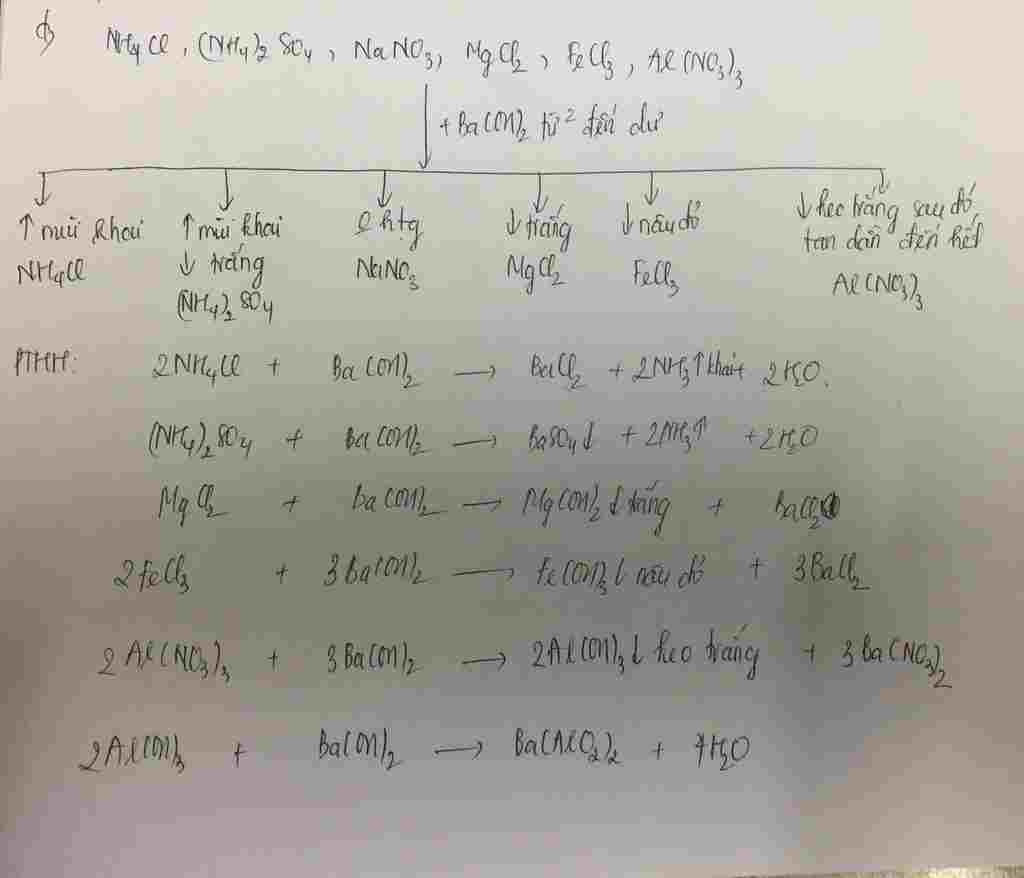 NH4Cl, (NH4)2 SO4, NaNO3, MgCl2, FeCl3, Al(NO3)3
+Ba(OH)2 từ 2 đến dư
↑mùi khai ↑mùi khai k htg ↓trắng ↓nâu đỏ ↓keo trắng sau đó
NH4Cl ↓ trắng NaNO3 MgCl2 FeCl3 tan dần đến hết
(NH4)2 SO4 Al(NO3)3
PTHH: 2NH4Cl + Ba(OH)2 → BaCl2 + 2NH3↑khai + 2H2O.
(NH4)2SO4 + Ba(OH)2 → BaSO4↓ + 2NH3↑ +2H2O
MgCl2 + Ba(OH)2 → Mg(OH)2↓trắng + BaCl2
2FeCl3 + 3Ba(OH)2 → Fe(OH)3↓ nâu đỏ + 3BaCl2
2Al(NO3)3 + 3Ba(OH)2 → 2Al(OH)3↓ keo trắng + 3Ba(NO3)2
2Al(OH)3 + Ba(OH)2 → Ba(AlO2)2 + 4H2O